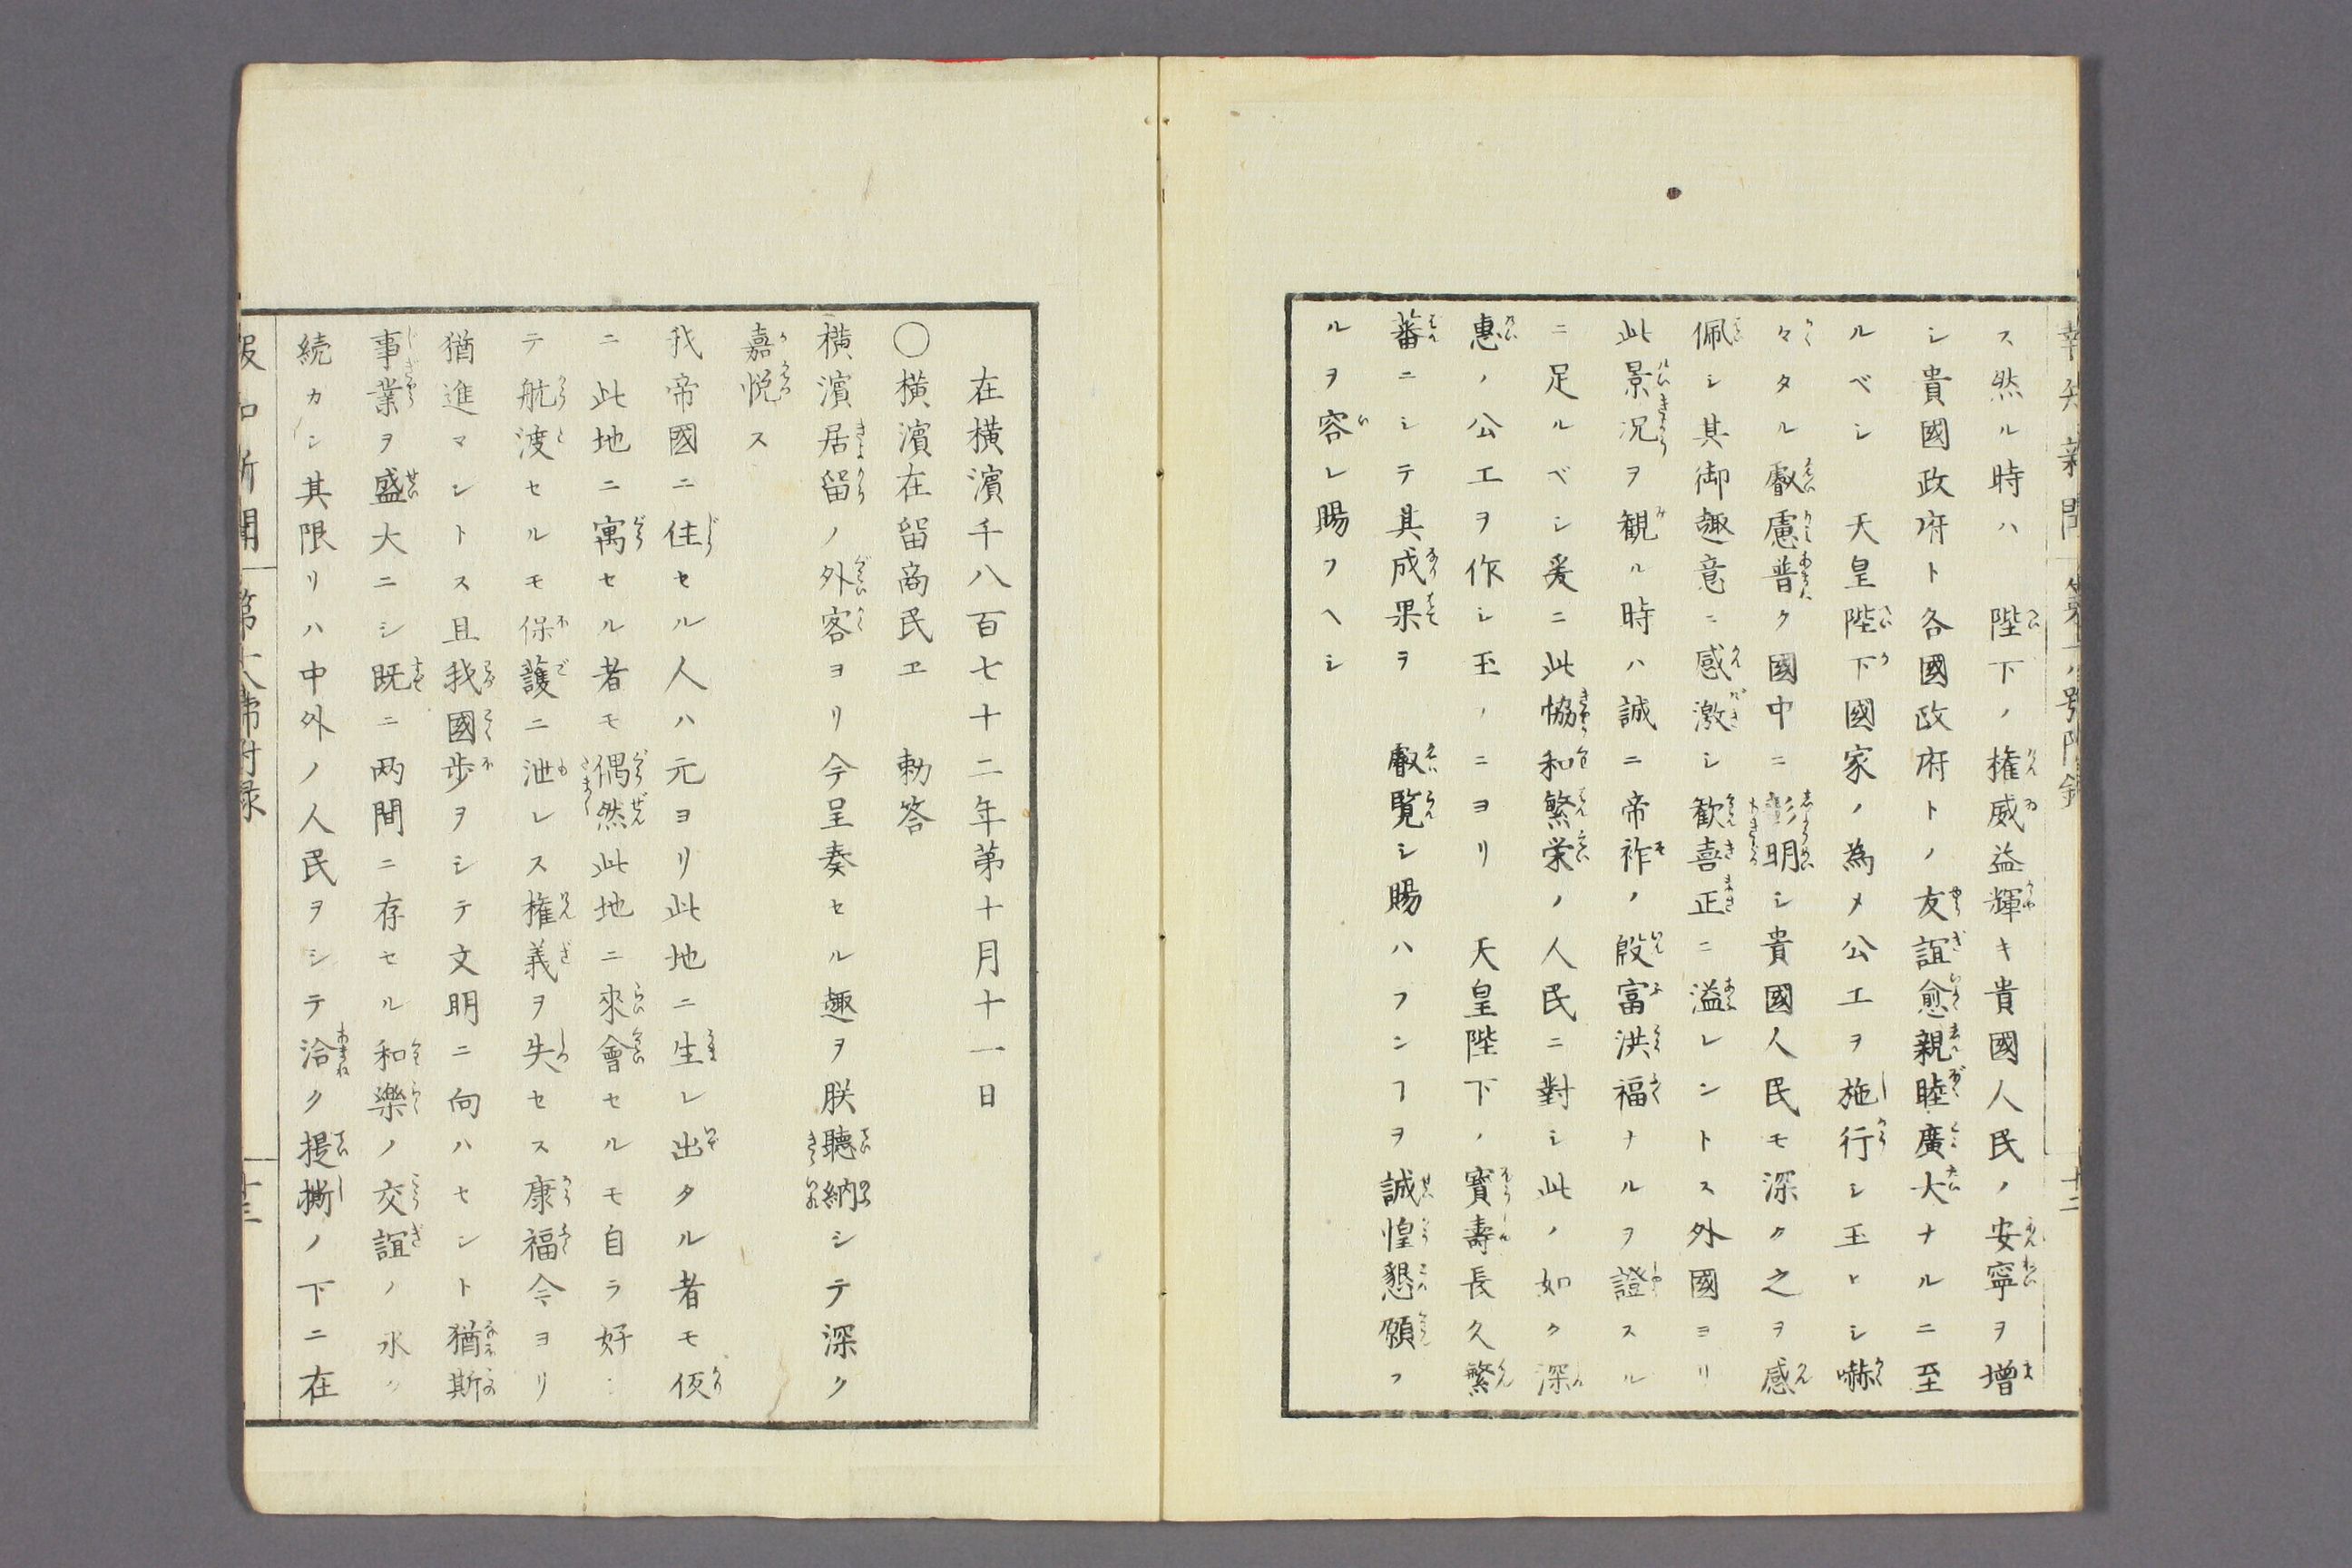 ス然ル時ハ　陛下ノ権威益輝キ貴國人民ノ安寧ヲ増
シ貴國政府ト各國政府トノ友誼愈親睦廣大ナルニ至
ルベシ　天皇陛下國家ノ為メ公工ヲ施行シ玉ヒシ嚇
々タル叡慮普ク國中ニ彰明シ貴國人民モ深ク之ヲ感
佩シ其御趣意ニ感激シ歓喜正ニ溢レントス外國ヨリ
此景况ヲ観ル時ハ誠ニ帝祚ノ殷富洪福ナルヲ證スル
ニ足ルベシ爰ニ此協和繁栄ノ人民ニ對シ此ノ如ク深
惠ノ公工ヲ作シ玉ノニヨリ　天皇陛下ノ寳壽長久繁
蕃ニシテ其成果ヲ　叡覧シ賜ハフンヿヲ誠惶懇願フ
ルヲ容レ賜フヘシ
在横濱千八百七十二年第十月十一日
〇横濱在留商民ヱ　勅答
横濱居留ノ外客ヨリ今呈奏セル趣ヲ朕聴納シテ深ク
嘉悦ス
我帝國ニ住セル人ハ元ヨリ此地ニ生レ出タル者モ仮
ニ此地ニ寓セル者モ偶然此地ニ來會セルモ自ラ好
テ航渡セルモ保護ニ泄レス権義ヲ失セス康福今ヨリ
猶進マントス且我國歩ヲシテ文明ニ向ハセント猶斯
事業ヲ盛大ニシ既ニ两間ニ存セル和樂ノ交誼ノ永ク
続カン其限リハ中外ノ人民ヲシテ洽ク提撕ノ下ニ在